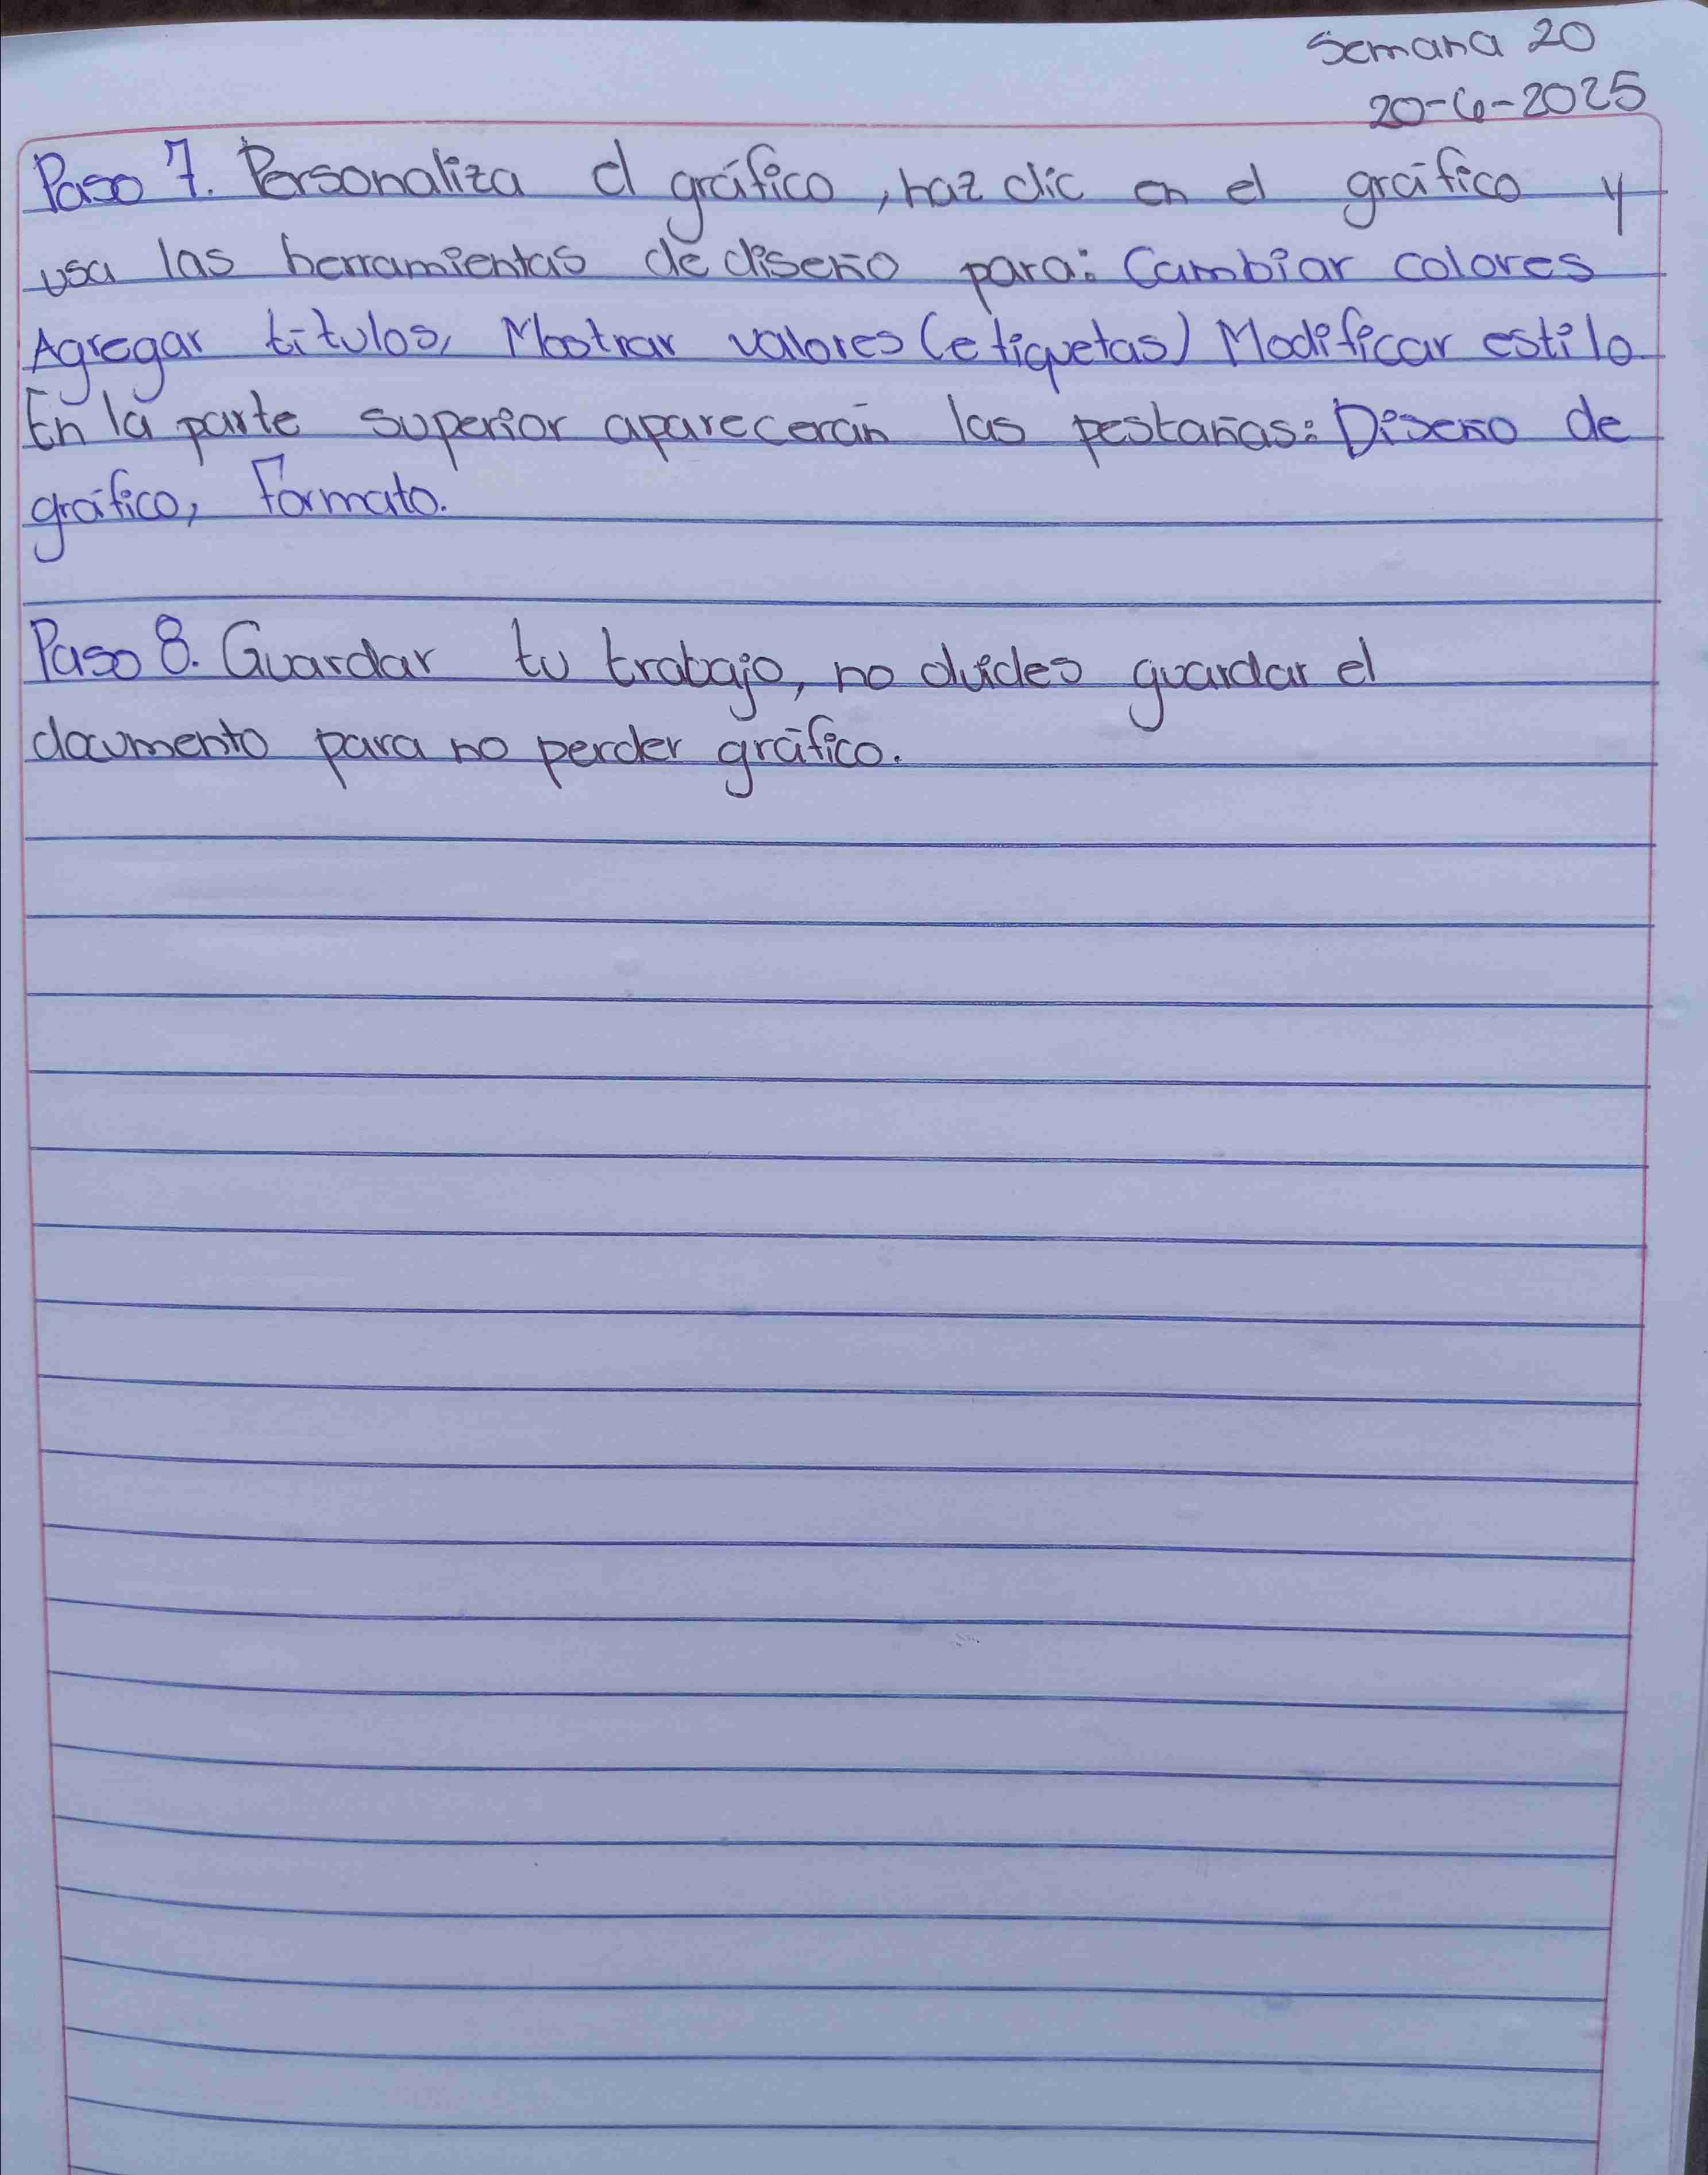 Semana 20
20-6-2025
Paso 7. Personaliza el gráfico, haz clic en el gráfico y
usa las herramientas de diseño para: Cambiar colores
Agregar títulos, Mostrar valores (etiquetas) Modificar estilo
En la parte superior aparecerán las pestañas: Diseño de
gráfico, Formato.
Paso 8. Guardar tu trabajo, no olvides guardar el
documento para no perder gráfico.